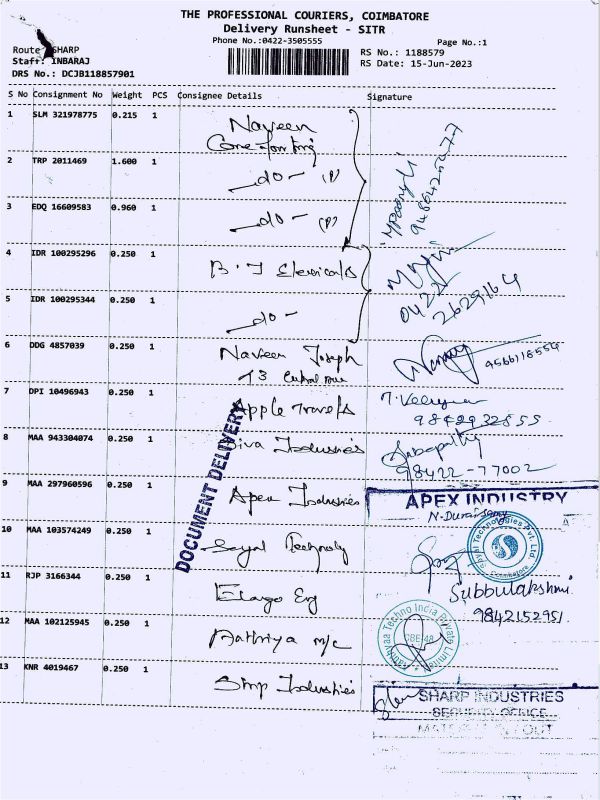 THE PROFESSIONAL COURIERS, COIMBATORE
Delivery Runsheet - SITR
Phone No.:0422-3505555 Page No.:1
Route: SHARP RS No.: 1188579
Staff: INBARAJ RS Date: 15-Jun-2023
DRS No.: DCJB118857901
S No Consignment No Weight PCS Consignee Details Signature
1 SLM 321978775 0.215 1 Naveen
2 TRP 2011469 1.600 1 -do- (P)
3 EDQ 16609583 0.960 1 -do- (P)
4 IDR 100295296 0.250 1 B.T Electricals
0422
2629164
5 IDR 100295344 0.250 1 -do-
6 DDG 4857039 0.250 1 Naveen Joseph
7 DPI 10496943 0.250 1 Apple Travels
98429 32855
8 MAA 943304074 0.250 1 Siva Industries
98422-77002
DOCUMENT DELIVERY
9 MAA 297960596 0.250 1 Apex Industries
APEX INDUSTRY
10 MAA 103574249 0.250 1 Technology
Sayal Technologies Pvt. Ltd.
Coimbatore
Subbulakshmi
9842152951
11 RJP 3166344 0.250 1 Elargo Eng
12 MAA 102125945 0.250 1 Aathriya m/c
Techno India Private Limited
CBE-48
13 KNR 4019467 0.250 1 Simp Industries
SHARP INDUSTRIES
SECURITY OFFICE
MATERIAL IN / OUT